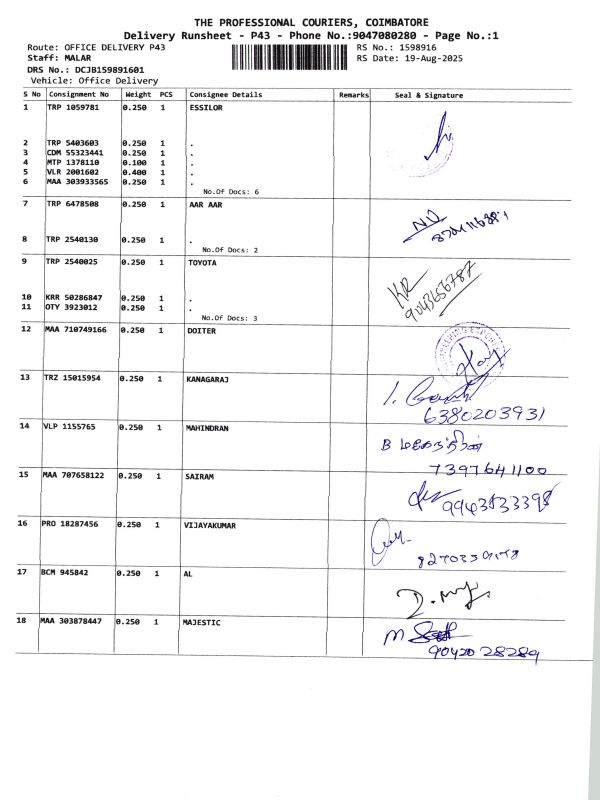 THE PROFESSIONAL COURIERS, COIMBATORE
Delivery Runsheet - P43 - Phone No.:9047080280 - Page No.:1
Route: OFFICE DELIVERY P43 RS No.: 1598916
Staff: MALAR RS Date: 19-Aug-2025
DRS No.: DCJB159891601
Vehicle: Office Delivery
S No Consignment No Weight PCS Consignee Details Remarks Seal & Signature
1 TRP 1059781 0.250 1 ESSILOR
2 TRP 5403603 0.250 1 .
3 CDM 55323441 0.250 1 .
4 MTP 1378110 0.100 1 .
5 VLR 2001602 0.400 1 .
6 MAA 303933565 0.250 1 .
No.Of Docs: 6
7 TRP 6478508 0.250 1 AAR AAR
8 TRP 2540130 0.250 1 .
No.Of Docs: 2
9 TRP 2540025 0.250 1 TOYOTA
KR
9043656787
10 KRR 50286847 0.250 1 .
11 OTY 3923012 0.250 1 .
No.Of Docs: 3
12 MAA 710749166 0.250 1 DOITER
13 TRZ 15015954 0.250 1 KANAGARAJ
6380203931
14 VLP 1155765 0.250 1 MAHINDRAN
B மகேந்திரன்
7397641100
15 MAA 707658122 0.250 1 SAIRAM
16 PRO 18287456 0.250 1 VIJAYAKUMAR
17 BCM 945842 0.250 1 AL
18 MAA 303878447 0.250 1 MAJESTIC
9042028289